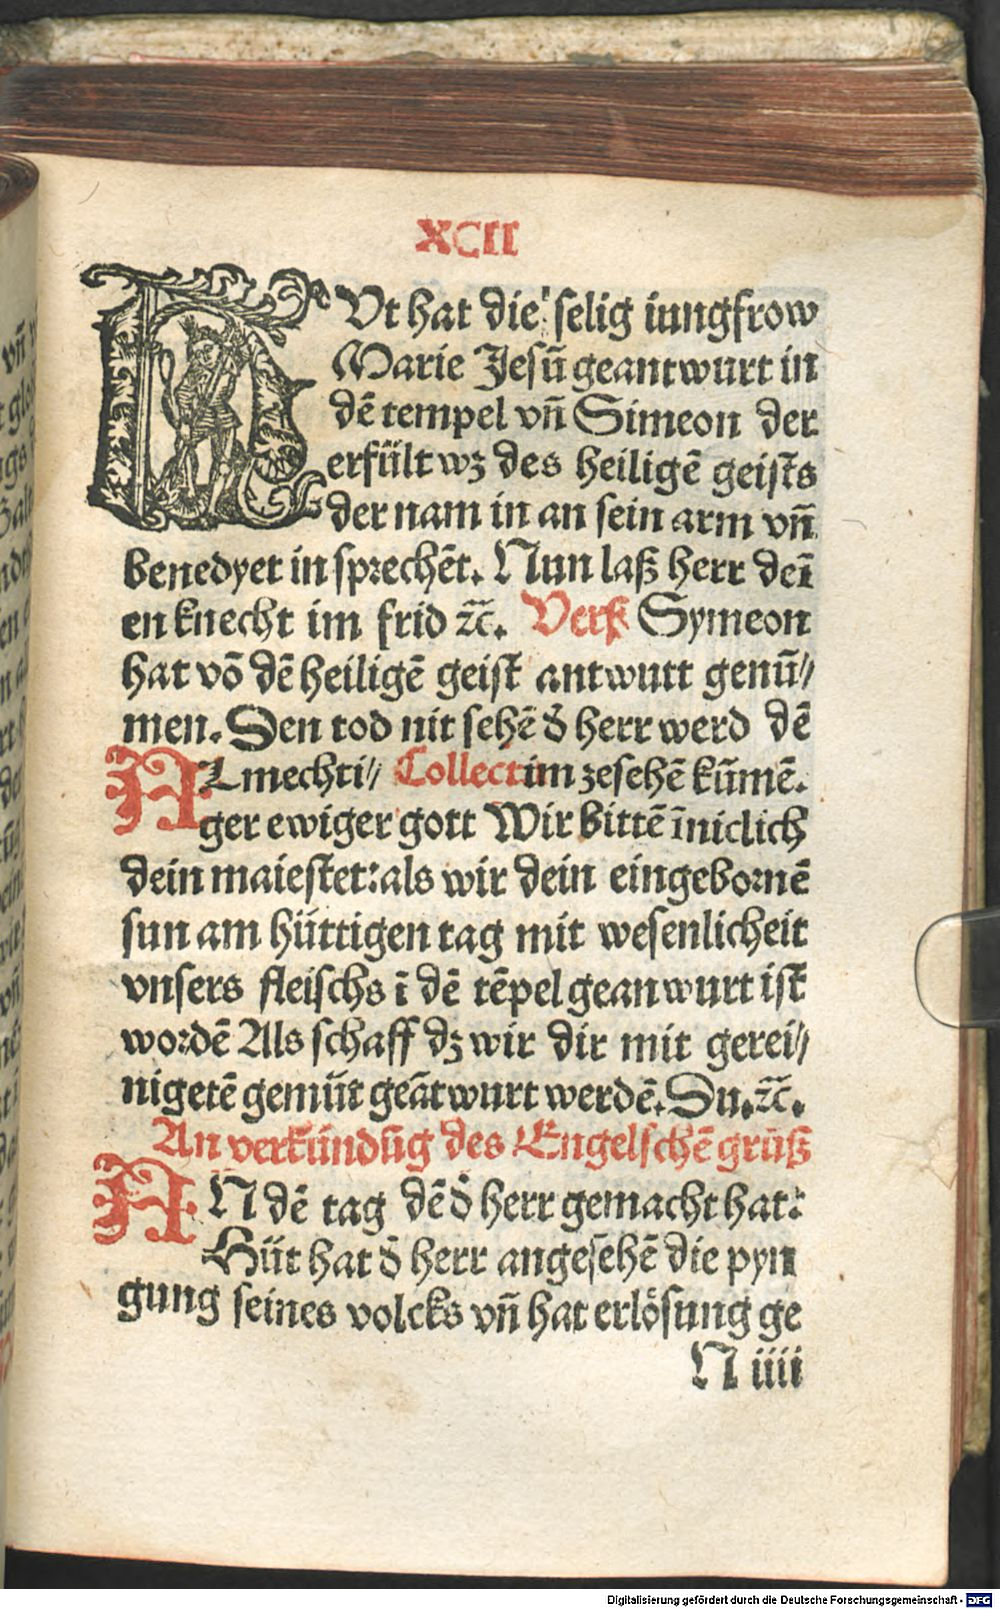 XCII
HVt hat die selig iungfrow
Marie Jesū geantwurt in
dē tempel vñ Simeon der
erfült wz des heiligē geists
der nam in an sein arm vñ
benedyet in sprechēt. Nun laß herr deī
en knecht im frid ⁊c̄. Vers Symeon
hat vō dē heiligē geist antwurt genū//
men. Den tod nit sehē d̕ herr werd dē
ALmechti// Collect im zesehē kūmē.
ger ewiger gott Wir bittē īniclich
dein maiestet: als wir dein eingebornē
sun am hüttigen tag mit wesenlicheit
vnsers fleischs ī dē tēpel geanwurt ist
wordē Als schaff dz wir dir mit gerei//
nigetē gemüt geātwurt werdē. Du. ⁊c̄.
An verkündūg des Engelschē grůß
AN dē tag dē d̕ herr gemacht hat:
Hüt hat d̕ herr angesehē die pyn
gung seines volcks vñ hat erlösung ge
N iiii
Digitalisierung gefördert durch die Deutsche Forschungsgemeinschaft - DFG